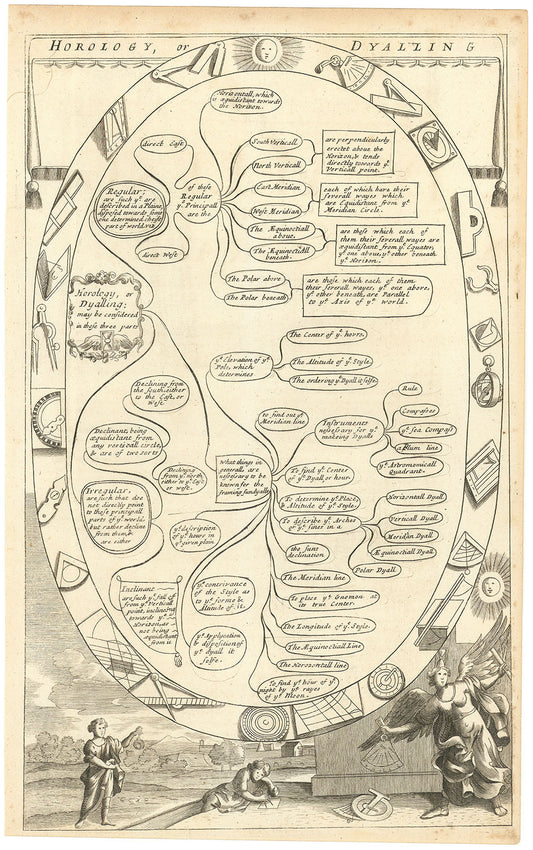 HOROLOGY, or DYALLING
Horizontall, which
is æquidistant towards
the Horizon.
direct East
South Verticall
North Verticall
are perpendicularly
erected above the
Horizon, & tends
directly towards yᵉ
Verticall point.
Regular;
are such yᵗ are
described in a Plane,
disposed towards some
one determined cheife
part of world, viz
of these
Regular
yᵉ Principall
are the
East Meridian
West Meridian
each of which have their
severall wayes which
are Equidistant from yᵉ
Meridian Circle.
direct West
The Æquinoctiall
above.
The Æquinoctiall
beneath.
are those which each of
them their severall wayes are
æquidistant from yᵉ Equator,
yᵉ one above, yᵉ other beneath
yᵉ Horizon.
The Polar above
The Polar beneath
are those which each of them
their severall wayes, yᵉ one above,
yᵉ other beneath, are Parallel
to yᵉ Axis of yᵉ world.
Horology, or
Dyalling;
may be considered
in these three parts
yᵉ Elevation of yᵉ
Pole, which
determines
The Center of yᵉ hours.
The Altitude of yᵉ Style.
The ordering yᵉ Dyall it selfe.
Declining from
the south, either
to the East, or
West
to find out yᵉ
Meridian line
Instruments
nessessary for yᵉ
makeing Dyalls
Rule
Compasses
yᵉ sea Compass
a Plum line
yᵉ Astronomicall
Quadrant.
Declinant, being
æquidistant from
any verticall circle,
& are of two sorts
Declining
from yᵉ north
either in yᵉ East
or west.
What things in
generall, are
nessessary to be
known for the
framing sundyalls
To find yᵉ Center
of yᵉ Dyall or hour.
To determine yᵉ Place,
& Altitude of yᵉ Style.
To describe yᵉ Arches
of yᵉ sines in a
Horizontall Dyall
Verticall Dyall
Meridian Dyall
Æquinoctiall Dyall
Polar Dyall
Irregular,
are such that doe
not directly point
to those principall
parts of yᵉ world,
but rather decline
from them, &
are either
yᵉ description
of yᵉ hours in
yᵉ given plan
the suns
declination
The Meridian line
To place yᵉ Gnomon at
its true Center.
Inclinant
are such yᵗ fall off
from yᵉ Verticall
point, inclineing
towards yᵉ
Horizon, as
not being
æquidistant
from it
yᵉ contrivance
of the Style as
to yᵉ forme &
Altitude of it.
The Longitude of yᵉ Style.
The Æquinoctiall Line
The Horozontall line
yᵉ Application
& disposition of
yᵉ dyall it
selfe.
To find yᵉ hour of yᵉ
night by yᵉ rayes
of yᵉ Moon.